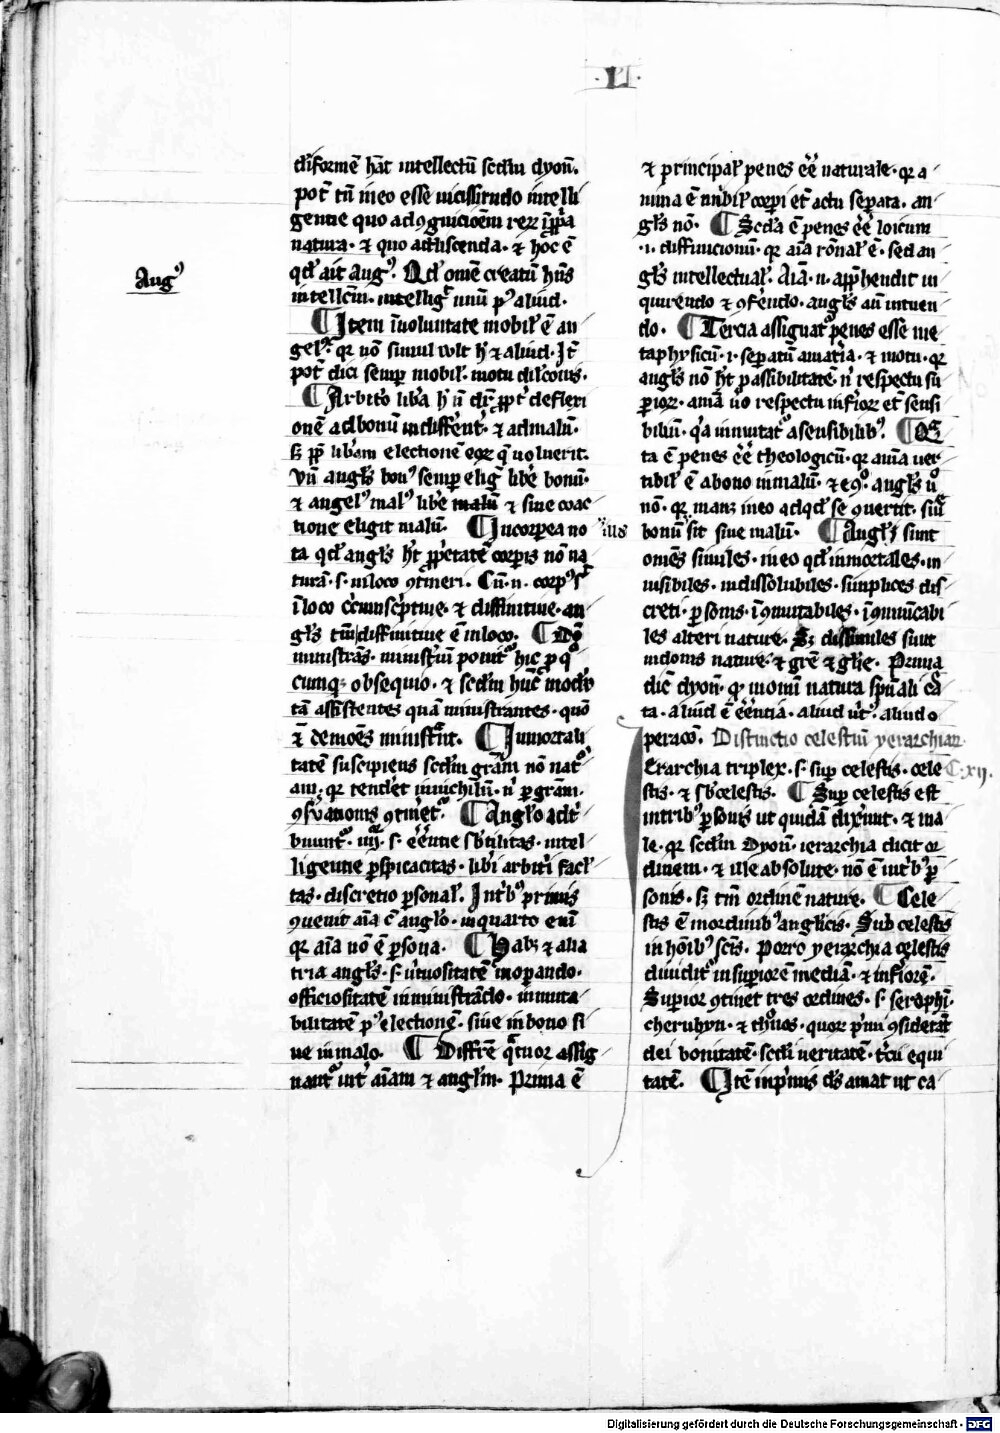 ·LI·
Augꝰ
diformē hāt intellectū scdm dyon̄.
pot̄ tn̄ in eo esse uicissitudo intelli
gentie quo ad ꝯgnicioēm reꝝ
natura· ⁊ quo ad discenda· ⁊ hoc ē
qd̄ ait Augꝰ. Qd̓ om̄e creatū
intellc̄m· intelligit̓ unū pꝰ aliud·
¶ Item inuoluntate mobil̓ ē an
gelꝰ· qr nō simul wlt h̓ ⁊ aliud· It̄
pot̄ dici semp̱ mobil̓· motu
¶ Arbit̓o lib̓a defleri
onē ad bonū indiffent̓· ⁊ ad malū·
lib̓am electionē noluerit·
Vn̄ angl̓s bonꝰ semp̱ elig̓ lib̓e bonū·
⁊ angelꝰ malꝰ lib̓e malū ⁊ siue coac
tione eligit malū· ¶ Incorp̱ea no
ta qd̓ angl̓s h̓t corp̱is nō na
turā· s· in loco ꝯtineri· Cū·n· corpꝰ
in loco ⁊ diffinitiue· an
gl̓s tm̄ diffinitiue ē in loco· ¶
ministrās· ministriū ponit̓ hic p̱
cumq obsequio· ⁊ scdm hūc modū
tā assistentes quā ministrantes· quō
⁊ demoēs ministrāt· ¶ Inmortali
tatē suscipiens scdm grām nō
am· qr tendet in nichilū· n̓ p̱ gram·
ꝯseruationis ꝯtinet̓· ¶ Angl̓o
buunt̓· s· eēntie sb̓tilitas· intel
ligentie p̱spicacitas· lib̓i arbit̓i facl̓
tas· discretio p̱sonal̓· In primis
ꝯuenit aīa c̄ angl̓o· in quarto enī
qr aīa nō ē p̱sona· ¶ Habꝫ ⁊ alia
tria angl̓s· s· uirtuositatē in op̱ando·
officiositatē in ministrādo· inmuta
bilitatē pꝰ electionē· siue in bono si
ue in malo· ¶ Differē assig
nant̓ int̓ aīam ⁊ angl̓m· Prima ē
⁊ principal̓ penes eē naturale· qr a
nima ē corp̱i ⁊ actu sep̱ata· an
gl̓s nō· ¶ Scd̓a ē penes eē loicum
·i· diffinicionū· qr aīa rōnal̓ ē· sed an
gl̓s intellectual̓· Aīa·n·app̱hendit in
quirendo ⁊ ꝯferendo· angl̓s aū intuen
do· ¶ Tercia assignat̓ penes esse me
taphysicū·i· sep̱atū a mat̓ia· ⁊ motu· qr
angl̓s nō h̓t passibilitatē n̓ respectu su
p̱ioꝝ· aīa u̓o respectu inf̓ioꝝ ⁊ sensi
biliū· inmutat̓ a sensibilibꝰ· ¶
ta ē penes eē theologicū· qr aīa uer
tibil̓ ē a bono in malū· ⁊ e ꝯꝰ· angl̓s u̓
nō· qr manꝫ in eo ad qd̓ se ꝯuertit· siu̓
bonū sit siue malū· ¶ Angl̓i sunt
omēs similes· in eo qd̓ inmortales· in
uisibiles· indissolubiles· simplices dis
creti· p̱sonis· inꝯmutabiles· inꝯmunicabi
les alteri nature· Sꝫ dissimiles sunt
in donis nature· ⁊ grē ⁊ glīe· Prima
dic̄ dyon̄· in omni natura
ta· aliud ē eēntia· aliud uirt̓· aliud o
peracō· Distinctio celestiū yerarchiaꝝ·
C·xij·
Ierarchia triplex· s· sup̱ celestis· cele
stis· ⁊ sb̓celestis· ¶ Sup̱ celestis est
in tribꝰ p̱sonis ut quidā dixerunt· ⁊ ma
le· qr scdm Dyon̄· ierarchia dicit or
dinem· ⁊ ille absolute· nō ē p̱
sonis· sꝫ tm̄ ordinē nature· ¶ Cele
stis ē in ordinibꝰ angl̓icis· Sub celestis
in hōibꝰ scīs· Porro yerarchia celestis
diuidit̓ in sup̱iorē mediā· ⁊ inf̓iorē·
Sup̱ior ꝯtinet tres ordines· s· seraphī·
cherubyn· ⁊ th̓nos· quoꝝ p̓mi ꝯsiderāt
dei bonitatē· scd̓i ueritatē· t̓cii equi
tatē· ¶ Itē in p̓mis d̄s amat ut ca
Digitalisierung gefördert durch die Deutsche Forschungsgemeinschaft - DFG